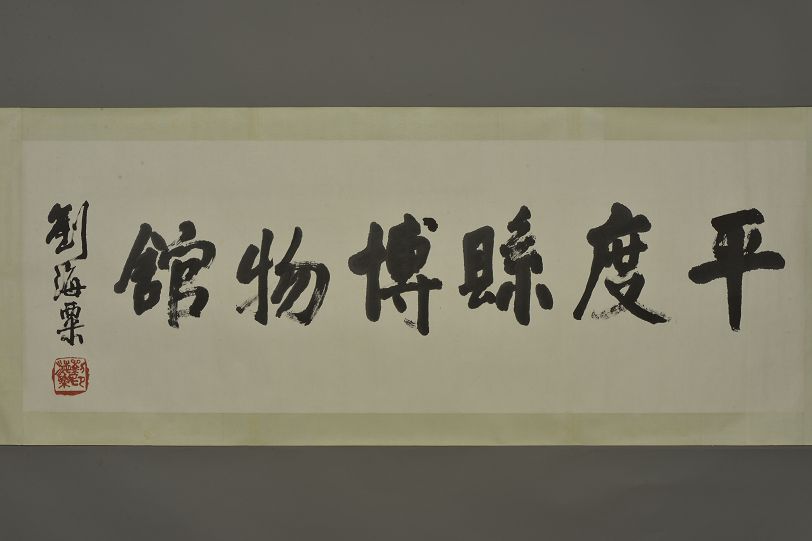 平度縣博物館
劉海粟